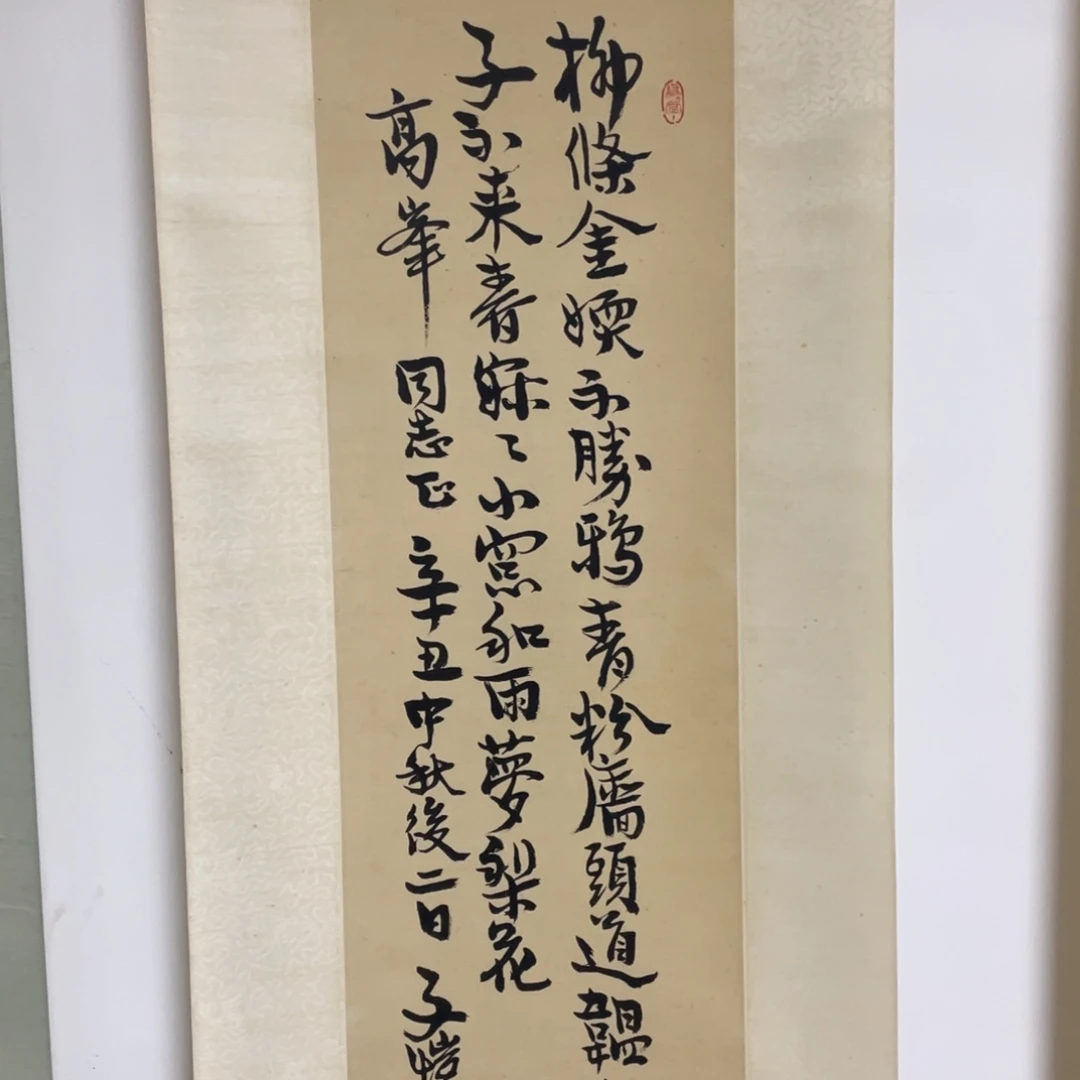 柳條金媆不勝鴉青粉牆頭道韞
子不来春寂〻小窓和雨夢梨花
高峯同志正 辛丑中秋後二日 子愷